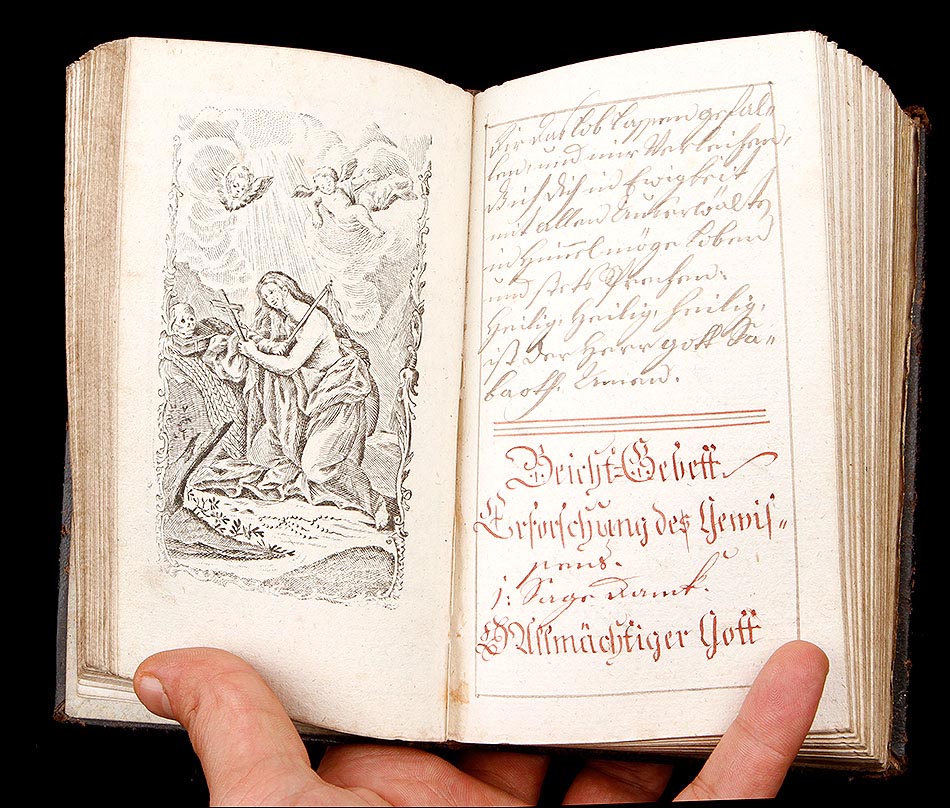 Dir das lob lassen gefal-
len, und mir Verleihen,
daß ich dich in Ewigkeit
mit allen Außerwälten
in Himel möge loben
und stets Sprechen:
Heilig, Heilig, heilig,
ist der Herr gott Sa-
baoth. Amen.
Beicht-Gebett
Erforschung des Gewis-
sens.
j: Sage Dank.
O Allmächtiger Gott